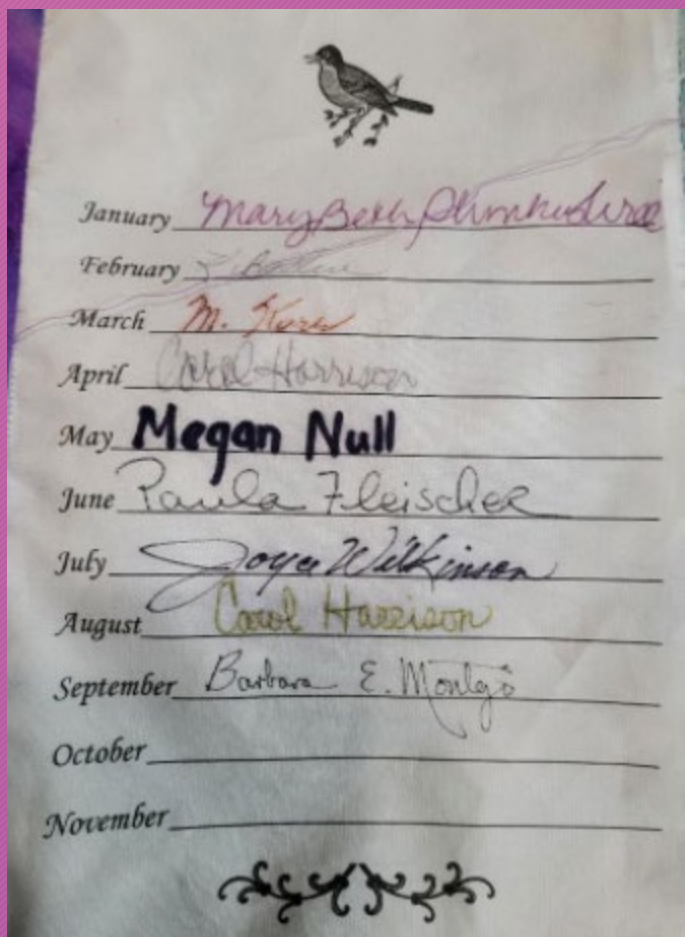 January Mary Beth
February
March M.
April Carol Harrison
May Megan Null
June Paula Fleischer
July Joyce Wilkinson
August Carol Harrison
September Barbara E.
October
November